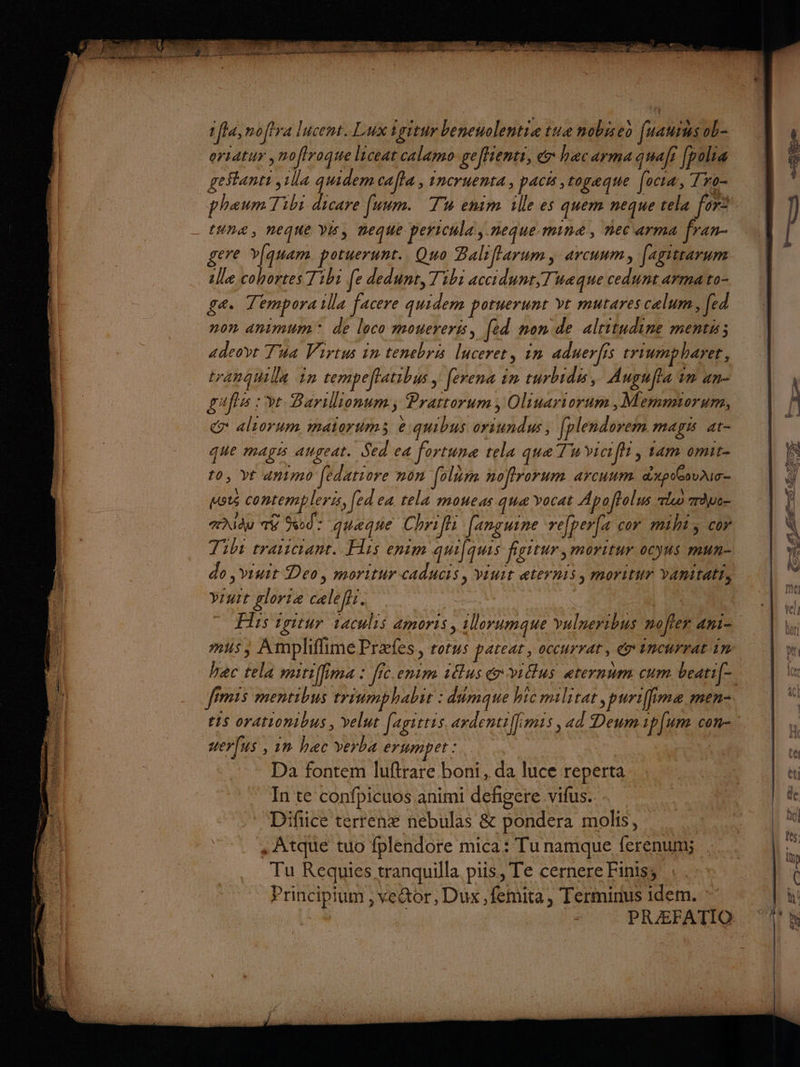 ista, nostra lucent. Lux igitur beneuolentiæ tuæ nobis eò suauiùs ob-
oriatur, nostroque liceat calamo gestienti, & hæc arma quasi spolia
gestanti, illa quidem casta, incruenta, pacis, togæque socia, Tro-
phæum Tibi dicare suum. Tu enim ille es quem neque tela for-
tunæ, neque vis, neque pericula, neque minæ, nec arma fran-
gere vsquam potuerunt. Quo Balistarum, arcuum, sagittarum
illæ cohortes Tibi se dedunt, Tibi accidunt, Tuæque cedunt arma to-
gæ. Tempora illa facere quidem potuerunt vt mutares cælum, sed
non animum: de loco mouereris, sed non de altitudine mentis;
adeovt Tua Virtus in tenebris luceret, in aduersis triumpharet,
tranquilla in tempestatibus, serena in turbidis, Augusta in an-
gustis: vt Barillionum, Prattorum, Oliuariorum, Memmiorum,
& aliorum maiorum; è quibus oriundus, splendorem magis at-
que magis augeat. Sed ea fortunæ tela quæ Tu vicisti, iam omit-
to, vt animo sedatiore non solùm nostrorum arcuum ἀκροβολισ-
μοὺς contempleris, sed ea tela moueas quæ vocat Apostolus τὴν πάνο-
πλίαν τοῦ Θεοῦ: quæque Christi sanguine respersa cor mihi, cor
Tibi traiiciant. His enim quisquis figitur, moritur ocyus mun-
do, viuit Deo, moritur caducis, viuit æternis, moritur vanitati,
viuit gloriæ cælesti.
His igitur iaculis amoris, illorumque vulneribus noster ani-
mus, Amplissime Præses, totus pateat, occurrat, & incurrat in
hæc tela mitissima: sic enim ictus & victus æternùm cum beatis-
simis mentibus triumphabit: dúmque hîc militat, purissimæ men-
tis orationibus, velut sagittis ardentissimis, ad Deum ipsum con-
uersus, in hæc verba erumpet:
Da fontem lustrare boni, da luce reperta
In te conspicuos animi defigere visus.
Disiice terrenæ nebulas & pondera molis,
Atque tuo splendore mica: Tu namque serenum;
Tu Requies tranquilla piis, Te cernere Finis,
Principium, vector, Dux, semita, Terminus idem.
PRÆFATIO